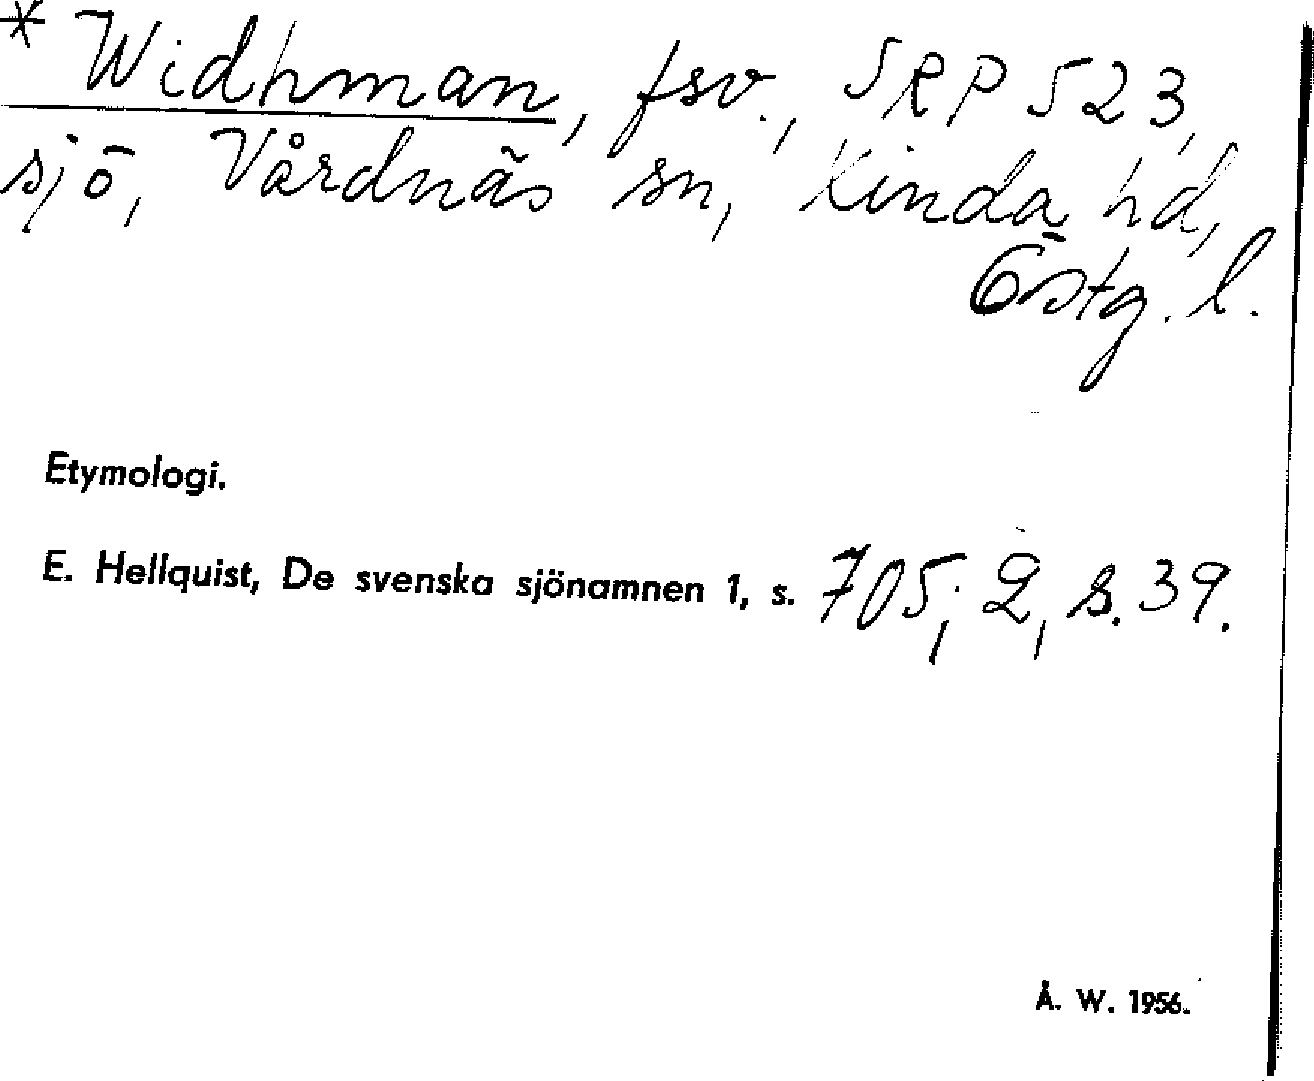 * Widhman, fsv., SRP 523,
sjö, Vårdnäs sn, Kinda hd,
Östg. l.
Etymologi.
E. Hellquist, De svenska sjönamnen 1, s. 705; 2, s. 39.
Å. W. 1956.